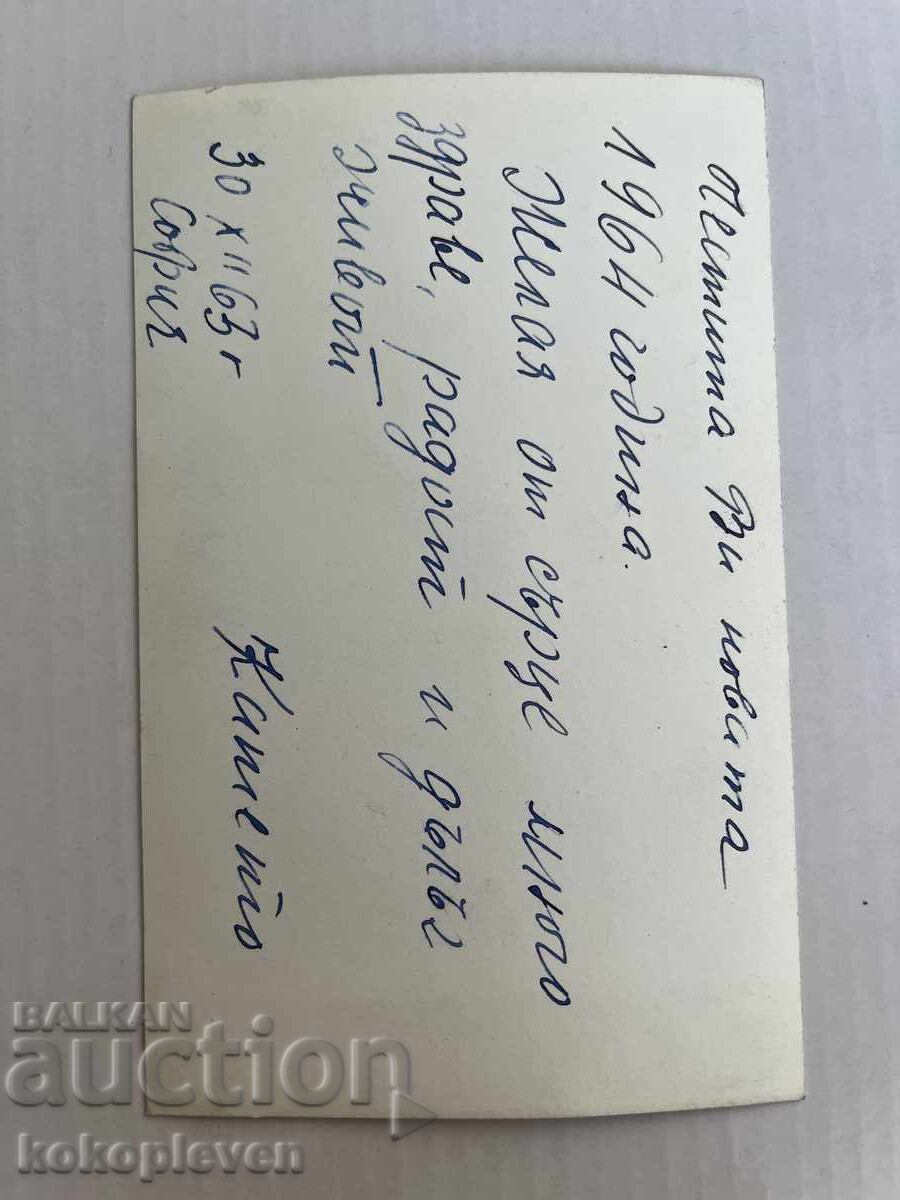 Честита Ви новата
1964 година.
Желая от сърце много
здраве, радост и дълъг
живот
30 XII 63 г
София
Капето
BALKAN
auction
kokopleven